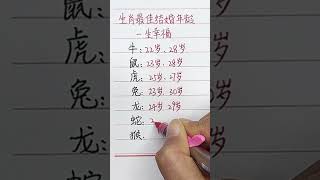 生肖最佳结婚年龄
一生幸福
牛：22岁、28岁
鼠：23岁、28岁
虎：25岁、27岁
兔：23岁 30岁
龙：24岁 29岁
蛇：2
猴：